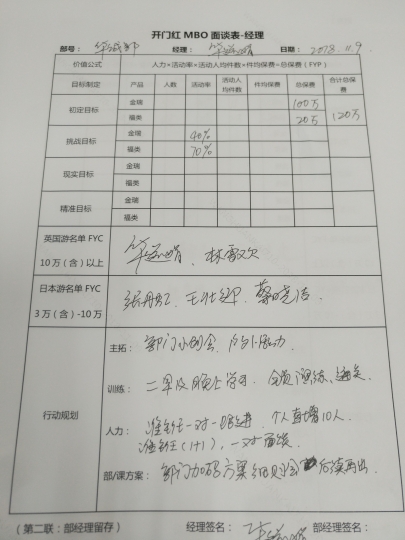 开门红 MBO 面谈表-经理
部号： 经理： 日期：2018.11.9
价值公式 人力×活动率×活动人均件数×件均保费=总保费（FYP）
目标制定 产品 人数 活动率 活动人均件数 件均保费 总保费 合计总保费
初定目标 金瑞 100万 120万
福类 20万
挑战目标 金瑞 40%
福类 70%
现实目标 金瑞
福类
精准目标 金瑞
福类
英国游名单 FYC
10万（含）以上 林雪欢
日本游名单 FYC
3万（含）-10万 张丹虹、
行动规划
主拓：部门小明会、
训练：二早及晚上学习、演练、通关
人力：一对一增进、个人直增10人、
(1+1)，一对一面谈
部/课方案：部门加码方案 后续再出、
（第二联：部经理留存） 经理签名： 部经理签名：